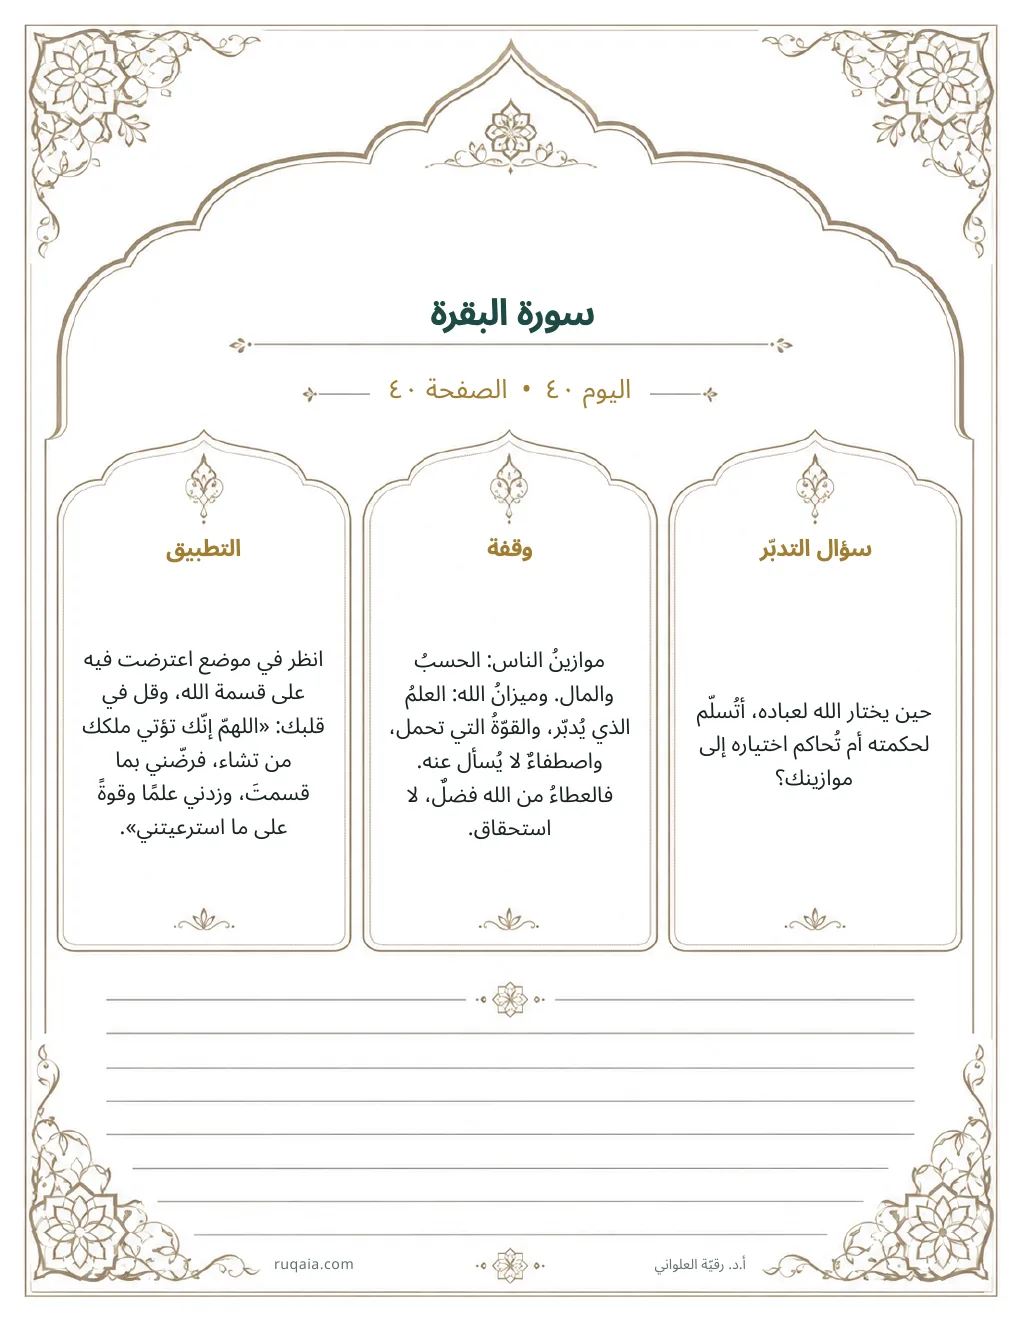 سورة البقرة
اليوم ٤٠ • الصفحة ٤٠
سؤال التدبّر
حين يختار الله لعباده، أتُسلّم
لحكمته أم تُحاكم اختياره إلى
موازينك؟
وقفة
موازينُ الناس: الحسبُ
والمال. وميزانُ الله: العلمُ
الذي يُدبّر، والقوّةُ التي تحمل،
واصطفاءٌ لا يُسأل عنه.
فالعطاءُ من الله فضلٌ، لا
استحقاق.
التطبيق
انظر في موضع اعترضت فيه
على قسمة الله، وقل في
قلبك: «اللهمّ إنّك تؤتي ملكك
من تشاء، فرضّني بما
قسمتَ، وزدني علمًا وقوةً
على ما استرعيتني».
أ.د. رقيّة العلواني
ruqaia.com